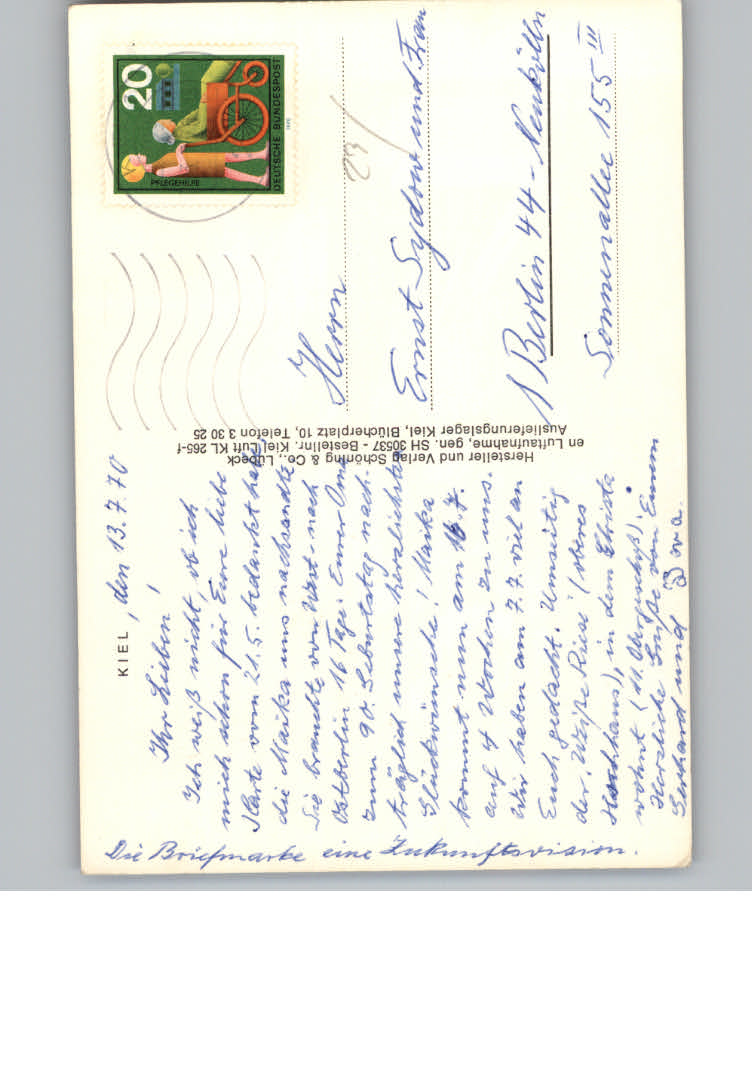 KIEL, den 13.7.70
Ihr Lieben!
Ich weiß nicht, ob ich
mich schon für Eure liebe
Karte vom 21.5. bedankt habe,
die Marika uns nachsandte
Sie brauchte von West- nach
Ostberlin 16 Tage. Eurer Oma
zum 90. Geburtstag nach-
träglich unsere herzlichsten
Glückwünsche! Marika
kommt nun am 16.7.
auf 4 Wochen zu uns.
Wir haben am 7.7. viel an
Euch gedacht. Umseitig
der "Weiße Riese" (oberes
Hochhaus), in dem Christa
wohnt (11. Obergeschoß).
Herzliche Grüße von Euern
Gerhard und Eva.
Die Briefmarke eine Zukunftsvision.
Hersteller und Verlag Schöning & Co., Lübeck
en Luftaufnahme, gen. SH 30537 - Bestellnr. Kiel Luft KL 265-f
Auslieferungslager Kiel, Blücherplatz 10, Telefon 3 30 25
20
PFLEGEHILFE
DEUTSCHE BUNDESPOST
1970
Herrn
Ernst Sydow und Frau
1 Berlin 44 - Neukölln
Sonnenallee 155 III